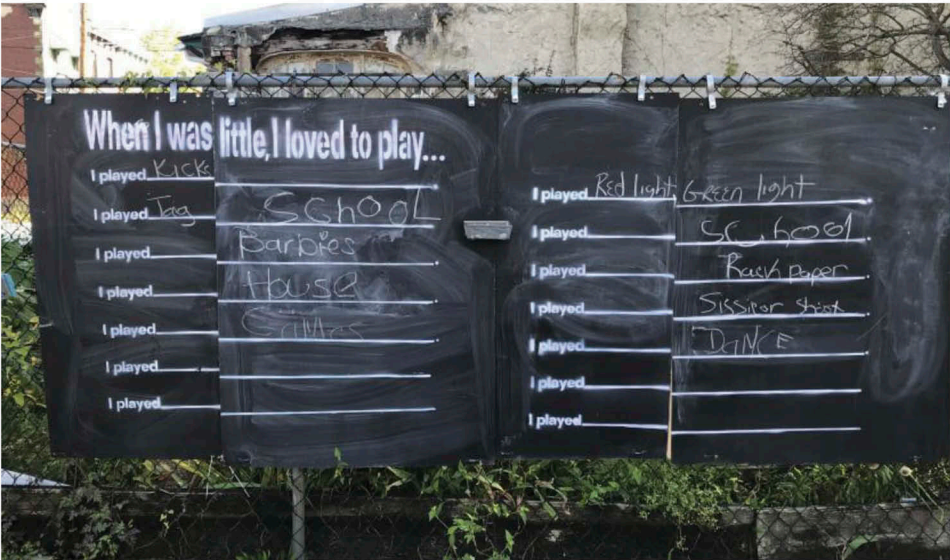 When I was little, I loved to play...
I played Kicks
I played Tag SCHOOL
I played Barbies
I played House
I played Games
I played
I played
I played Red light Green light
I played School
I played Rash paper
I played Sissior shoot
I played DANCE
I played
I played